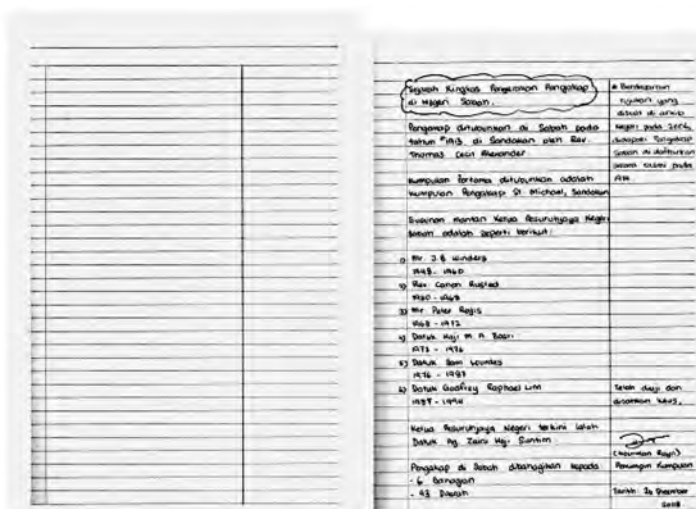 Sejarah Ringkas Pergerakan Pengakap
di Negeri Sabah.
Pengakap ditubuhkan di Sabah pada
tahun *1913, di Sandakan oleh Rev.
Thomas Cecil Alexander.
Kumpulan Pertama ditubuhkan adalah
Kumpulan Pengakap St. Michael, Sandakan
Susunan mantan Ketua Pesuruhjaya Negeri
Sabah adalah seperti berikut:
1) Mr. J.B. Winders
2) Rev. Canon Rusted
3) Mr. Peter Regis
1968 - 1972
4) Datuk Haji M. A. Basri
5) Datuk Sam Lourdes
6) Datuk Godfrey Raphael Lim
Ketua Pesuruhjaya Negeri terkini ialah
Datuk Ag. Zainu Haji Suntim
Pengakap di Sabah dibahagikan kepada
- 6 Bahagian
- 43 Daerah
* Berdasarkan
rujukan yang
dibuat di arkib
Negeri pada
Pengakap
Sabah di daftarkan
secara rasmi pada
Telah diuji dan
disahkan lulus.
Pemimpin Kumpulan
Tarikh: